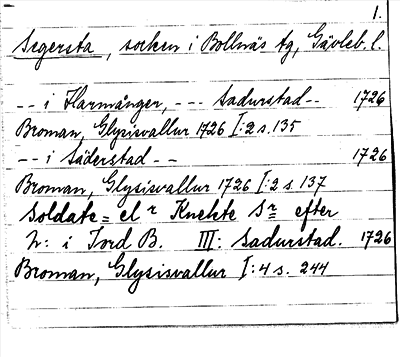 1.
Segersta, socken i Bollnäs tg, Gävleb. l.
-- i Harmånger, --- Sadurstad-- 1726
Broman, Glysisvallur 1726 I:2 s. 135
-- i Säderstad -- 1726
Broman, Glysisvallur 1726 I:2 s. 137
Soldate= el r Knekte Sr efter
h: i Jord B. III: Sadurstad. 1726
Broman, Glysisvallur I:4 s. 244